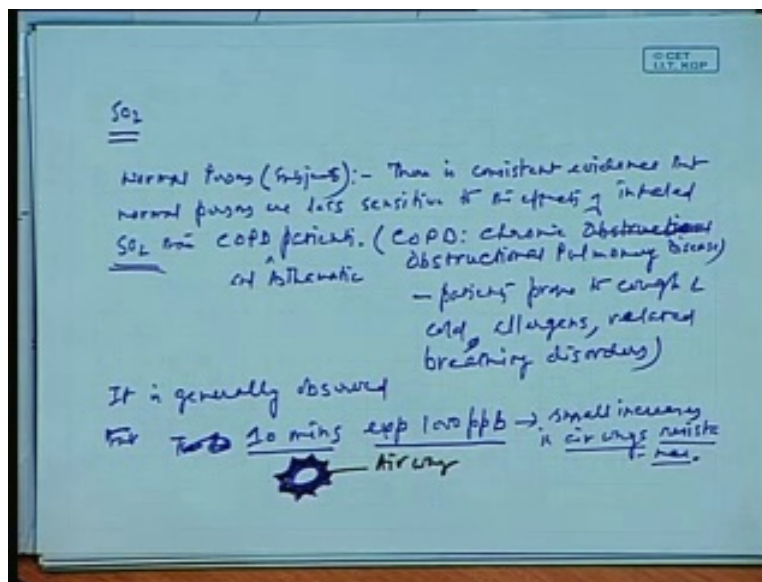 © CET
I.I.T. KGP
SO2
Normal Persons (Subjects):- There is consistent evidence that
normal persons are less sensitive to the effects of inhaled
SO2 than COPD patients. (COPD: Chronic Obstructional
and Asthematic Obstructional Pulmonary Disease)
- patients prone to cough &
cold, allergens, related
breathing disorders)
It is generally observed
10 mins exp 1000 ppb → small increase
in airways resista
- nce.
Airway